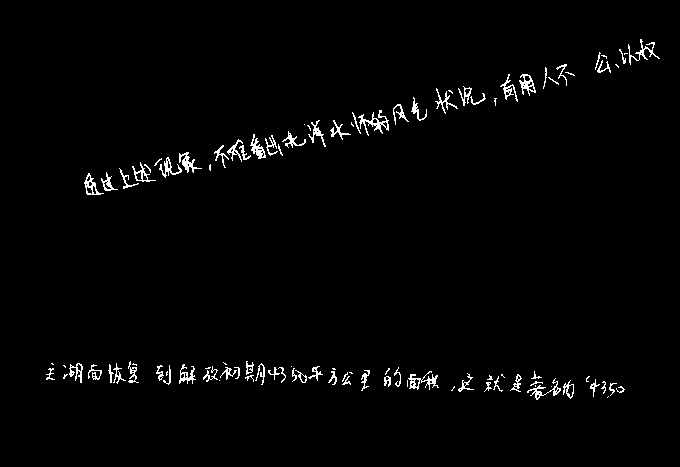 透过上述现象，不难看出北洋水师的风气状况，有用人不公、以权
主湖面恢复到解放初期4350平方公里的面积，这就是著名的“4350